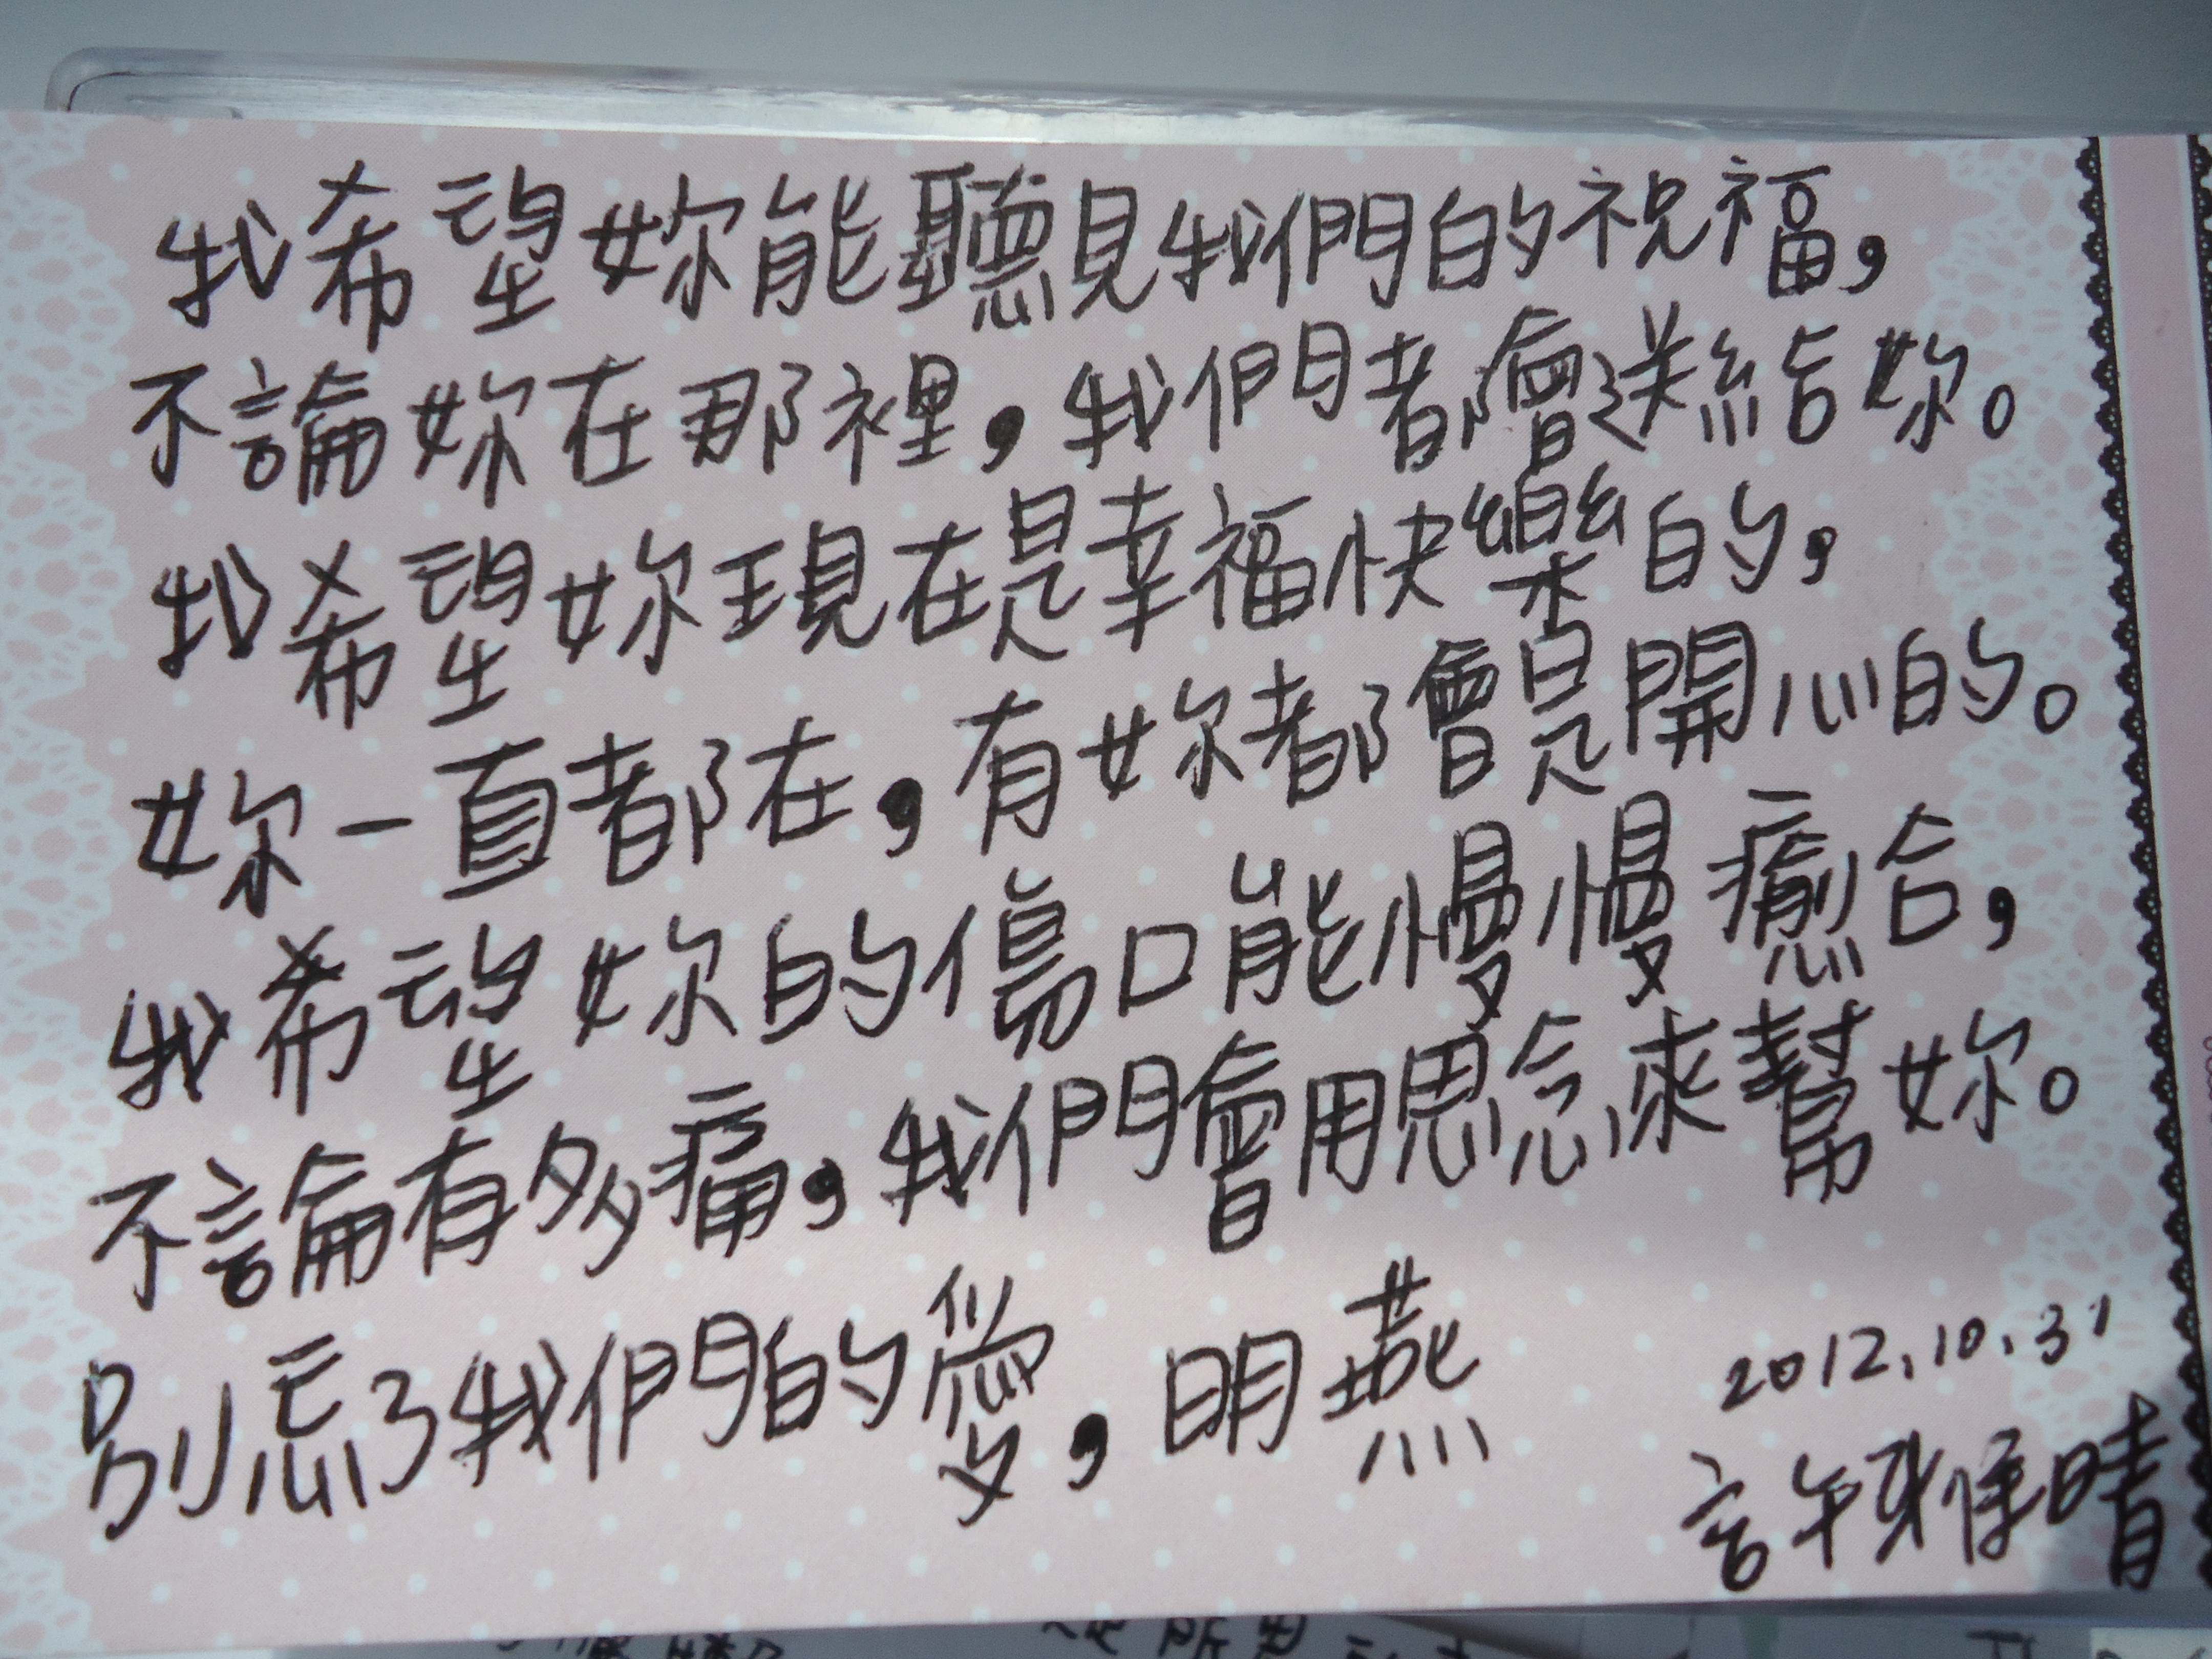 我希望妳能聽見我們的祝福，
不論妳在那裡，我們都會送給妳。
我希望妳現在是幸福快樂的，
妳一直都在，有妳都會是開心的。
我希望妳的傷口能慢慢癒合，
不論有多痛，我們會用思念來幫妳。
別忘了我們的愛，明燕
2012.10.31
許雅晴